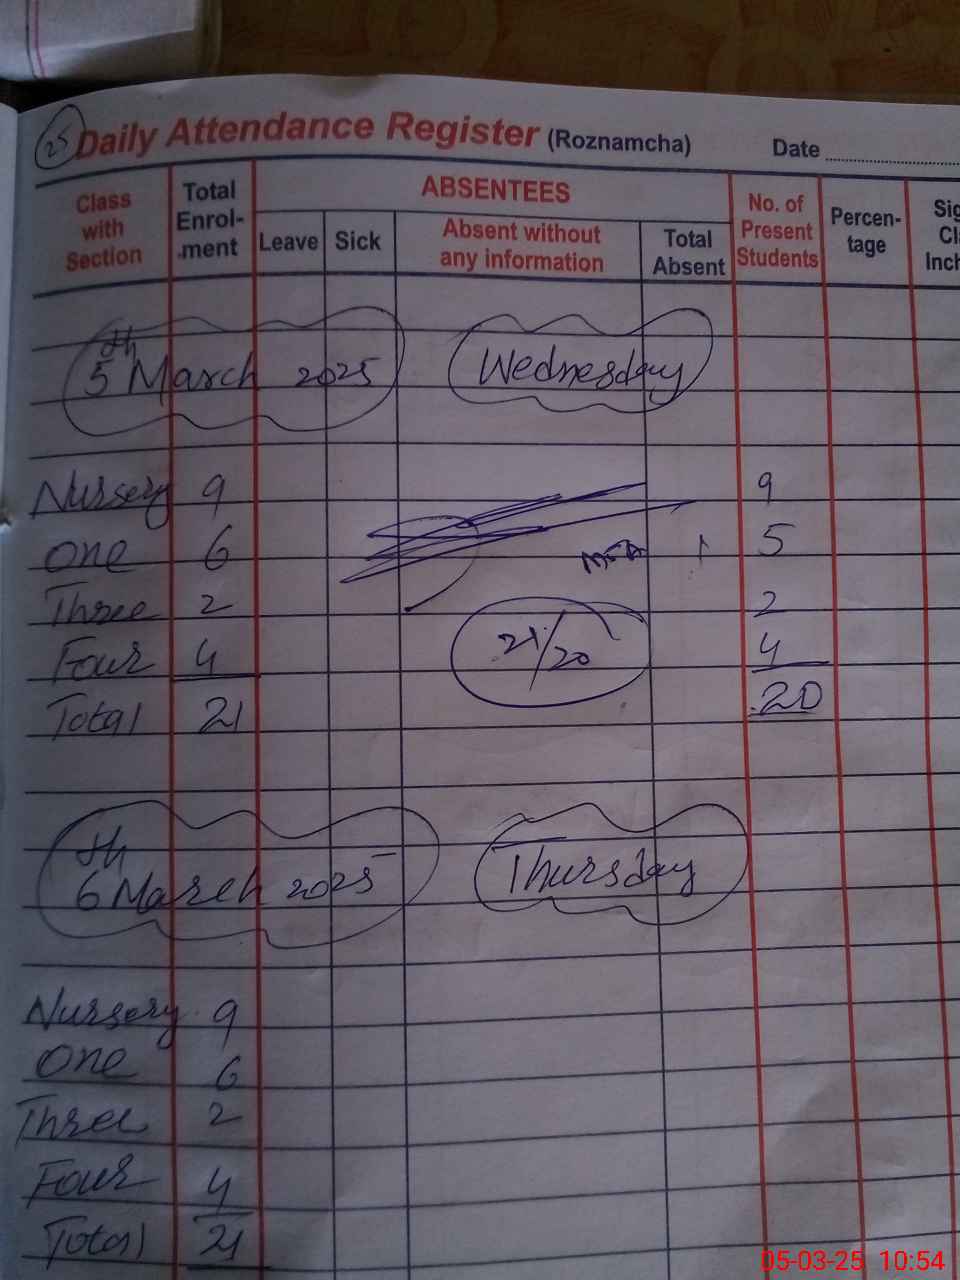 25 Daily Attendance Register (Roznamcha) Date
Class with Section Total Enrol-ment ABSENTEES No. of Present Students Percen-tage Sig Cl Inch
Leave Sick Absent without any information Total Absent
5th March 2025 Wednesday
Nursery 9 9
One 6 1 5
Three 2 2
Four 4 21/20 4
Total 21 20
6th March 2025 Thursday
Nursery 9
One 6
Three 2
Four 4
Total 21
05-03-25 10:54